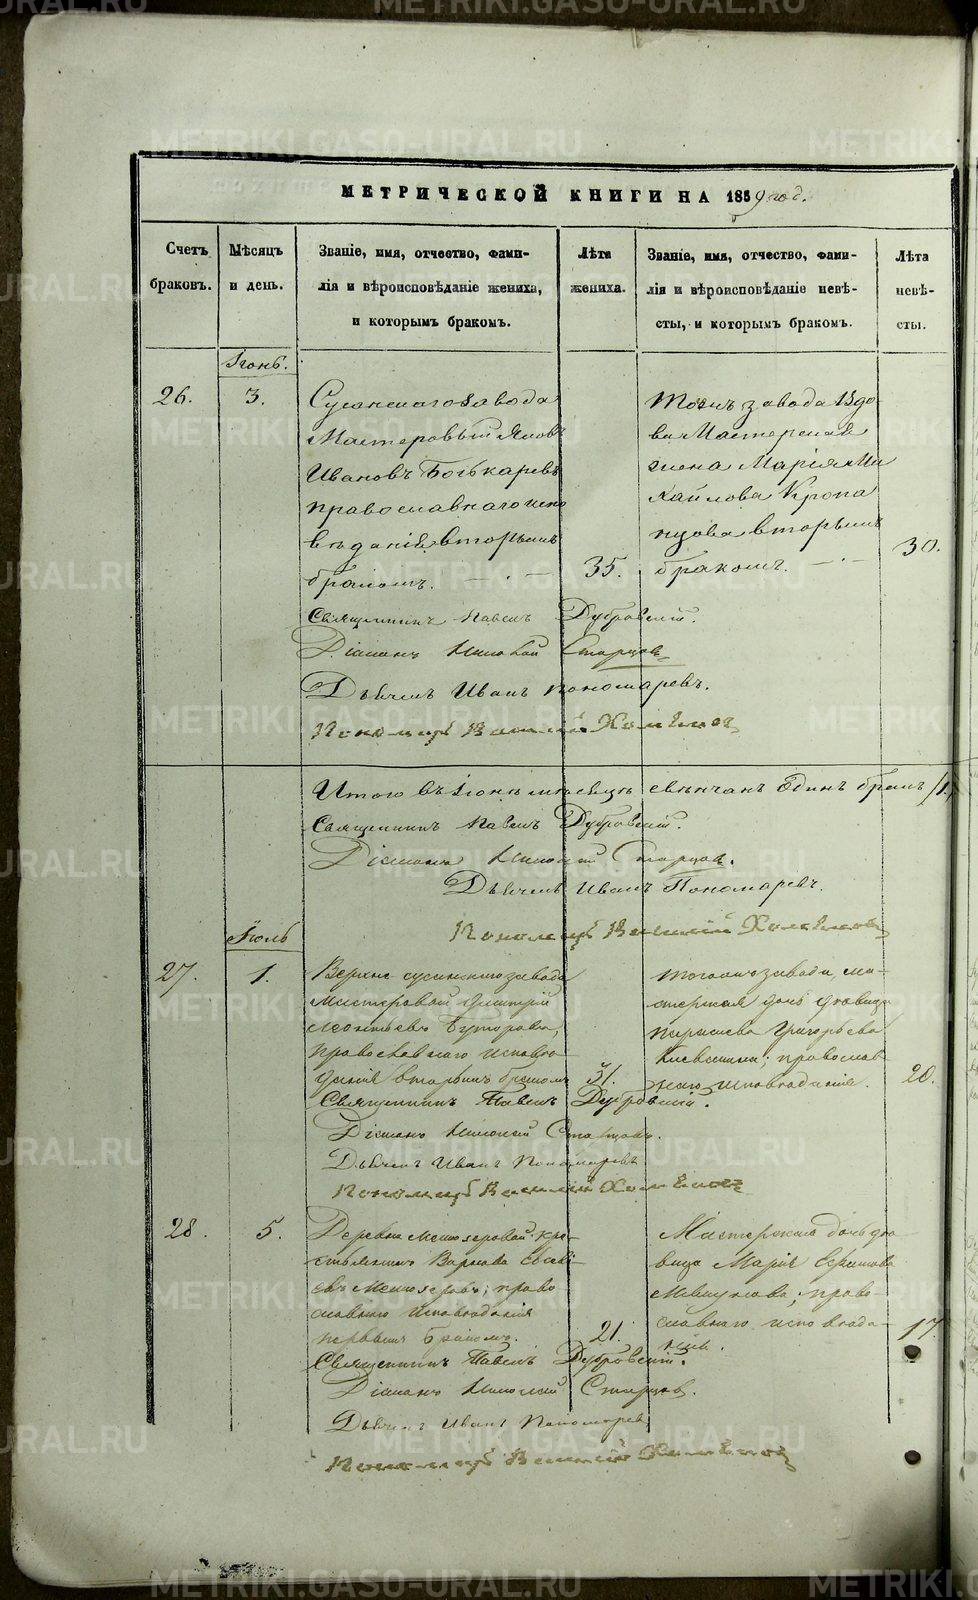 МЕТРИЧЕСКОЙ КНИГИ НА 1859 год.
Счетъ браковъ.
Мѣсяцъ и день.
Званіе, имя, отчество, фами-
лія и вѣроисповѣданіе жениха,
и которымъ бракомъ.
Лѣта
жениха.
Званіе, имя, отчество, фами-
лія и вѣроисповѣданіе невѣ-
сты, и которымъ бракомъ.
Лѣта
невѣ-
сты.
Іюнь.
26.
3.
Сусанскаго завода
Мастеровый Яковъ
Ивановъ
православнаго испо
вѣданія вторымъ
бракомъ.
35.
Тогожъ завода Вдо-
ва Мастерская
жена Марія Ми
хайлова Кропа
чова вторымъ
бракомъ.
30.
Священникъ Павелъ Дубровскій.
Діаконъ Николай Старцов
Дьячекъ Иванъ Пономаревъ.
Пономарь Василій
Итого въ Іюнѣ мѣсяцѣ свѣнчан один брак /1/
Священникъ Павелъ Дубровскій.
Діаконъ Николай Старцов.
Дьячекъ Иванъ Пономаревъ.
Пономарь Василій
Іюль
27.
1.
Верхне сусанскаго завода
мастеровой Дмитрій
Леонтьевъ Буторовъ,
православнаго исповѣ
данія вторымъ бракомъ
31.
тогожъ завода, ма-
стерская дочь девица
Григорьева
православ
наго исповѣданія.
20.
Священникъ Павелъ Дубровскій.
Діаконъ Николай Старцовъ.
Дьячекъ Иванъ Пономаревъ
Пономарь Василій
28.
5.
Деревни кре-
стьянинъ
право
славнаго исповѣданія
первымъ бракомъ.
21.
Мастерская дочь де
вица Марія Ефимова
право-
славнаго исповѣда-
нія.
17.
Священникъ Павелъ Дубровскій.
Діаконъ Николай Старцов.
Дьячекъ Иванъ Пономаревъ
Пономарь Василій
METRIKI.GASO-URAL.RU